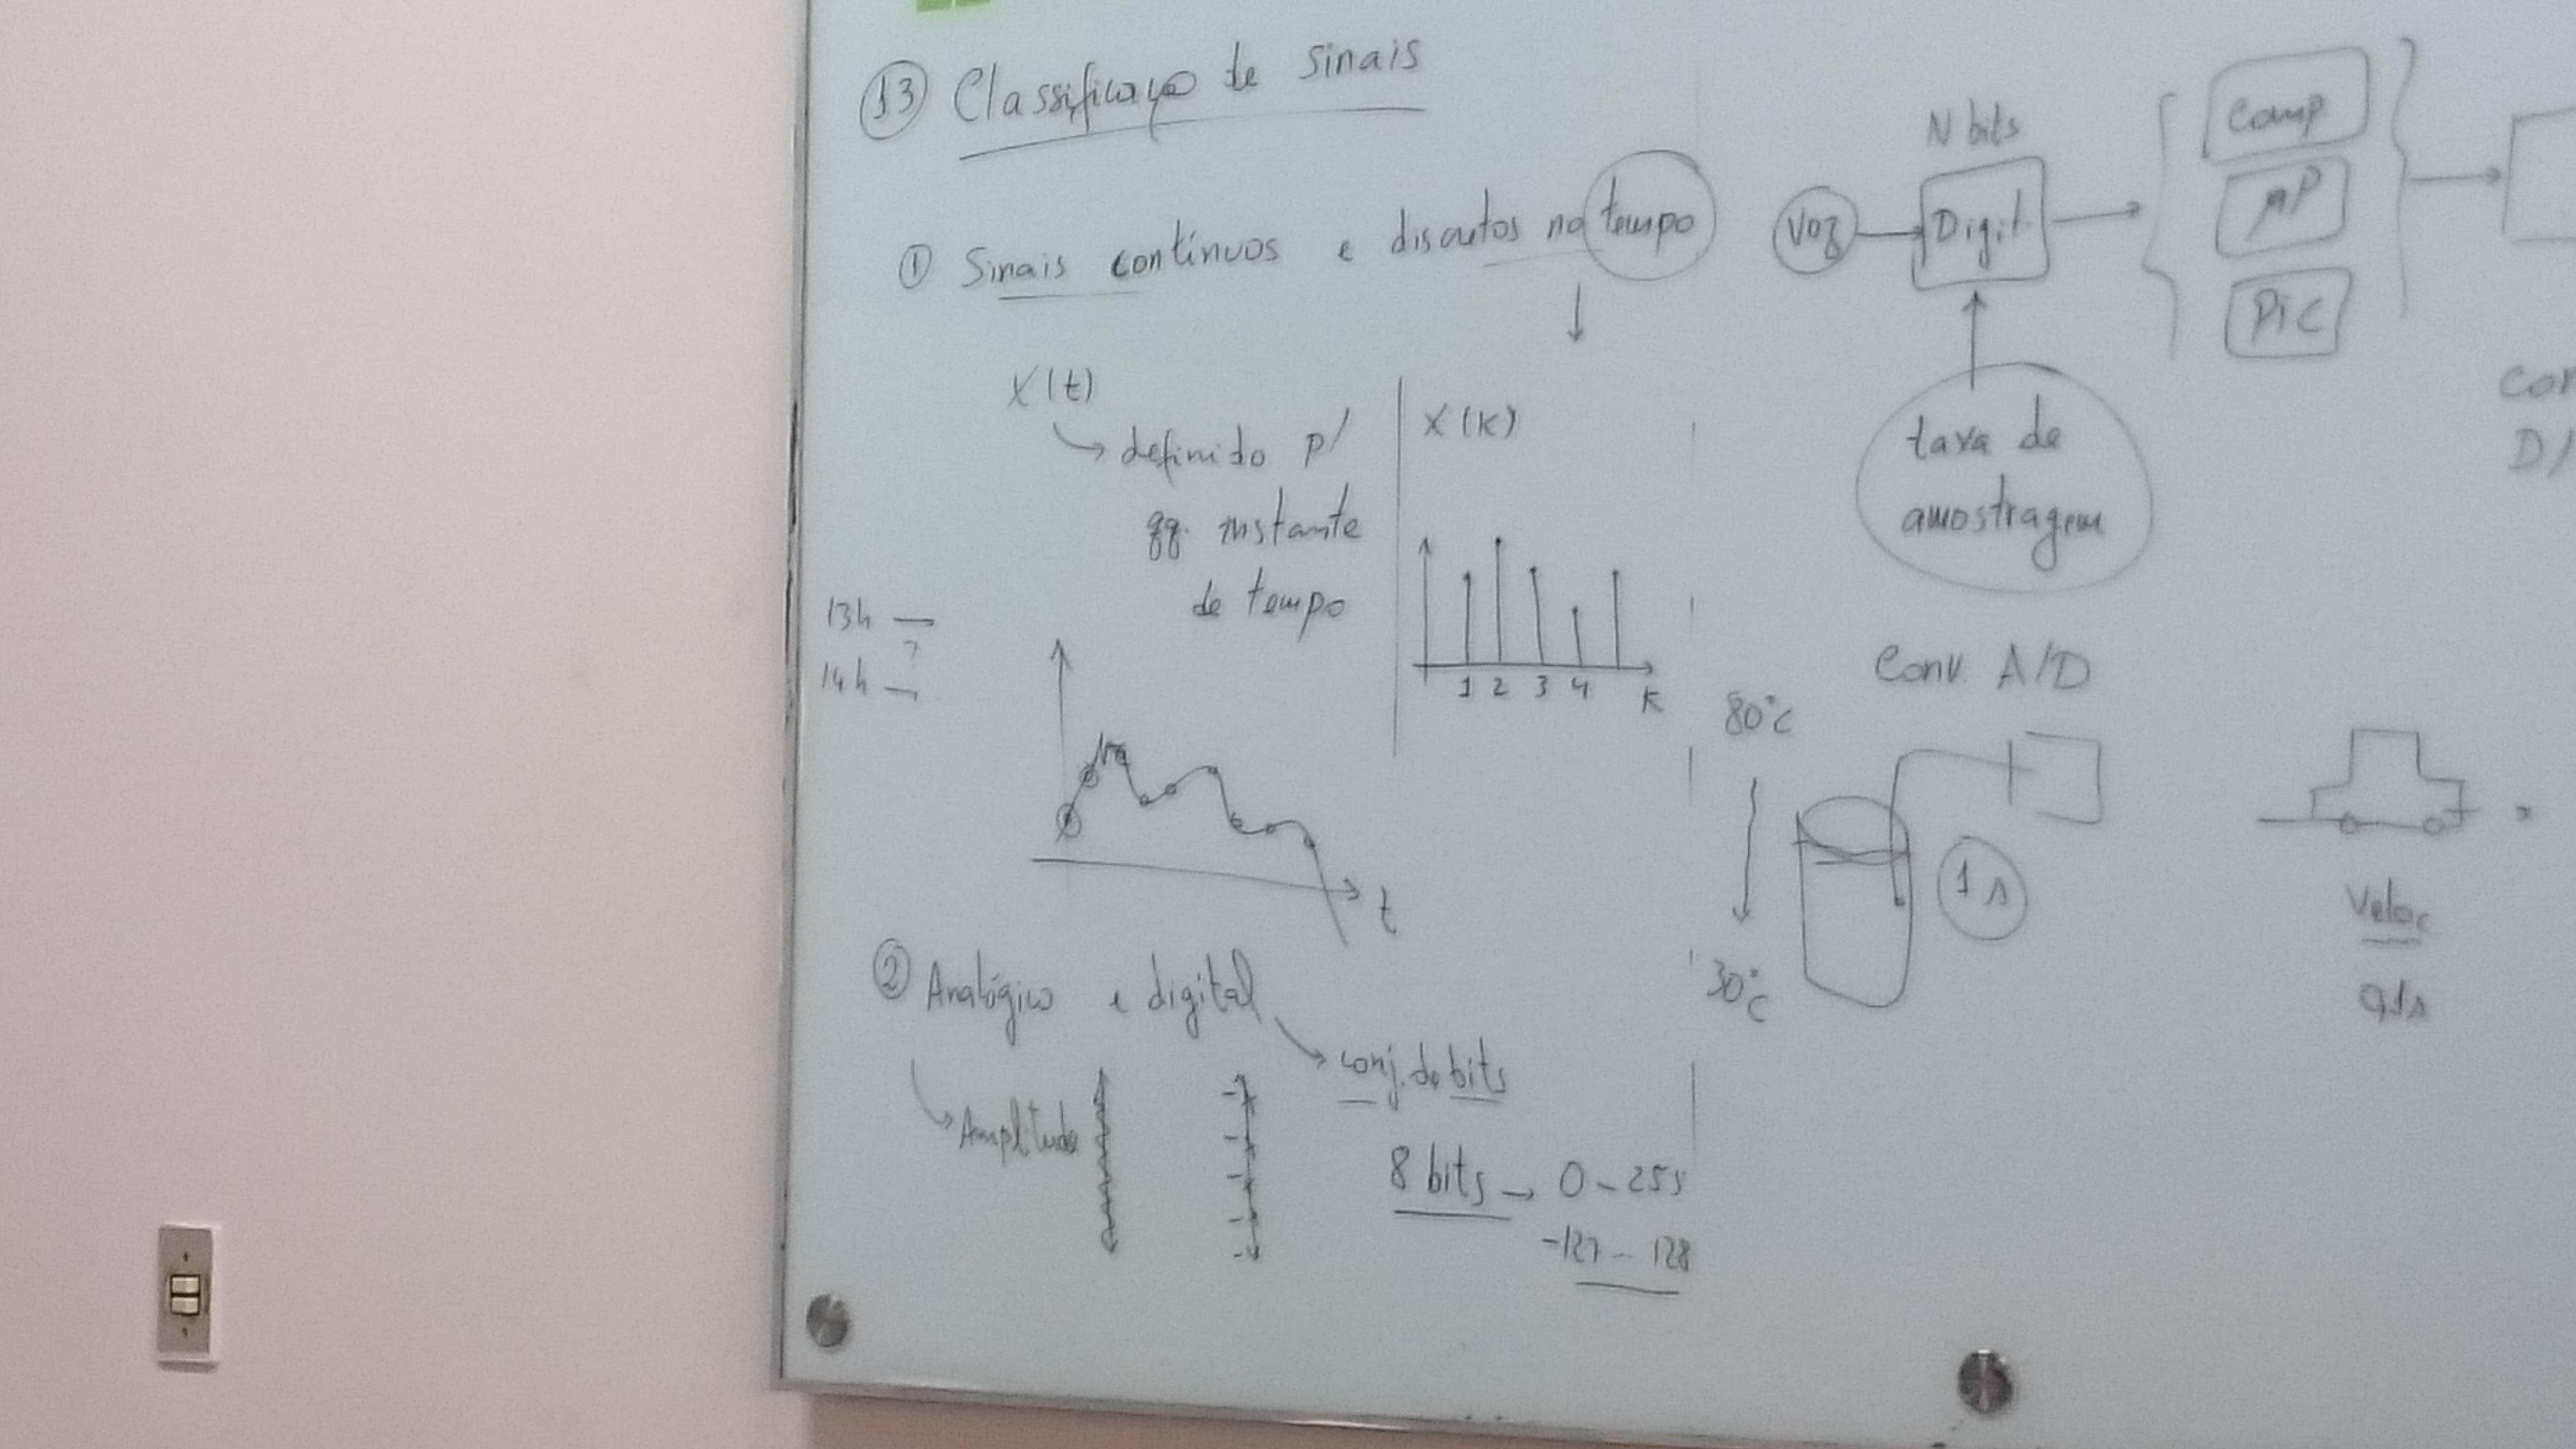 13 Classificação de sinais
① Sinais contínuos e discretos no tempo
X(t)
definido p/
qq. instante
de tempo
13h
?
14h
t
X(k)
1 2 3 4 K
② Analógico e digital
Amplitude
conj. de bits
8 bits → 0 - 255
-127 - 128
N bits
Voz
Digit.
Comp
μP
PIC
taxa de
amostragem
Conv. A/D
80°C
30°C
1s
Veloc
0,1s
D/